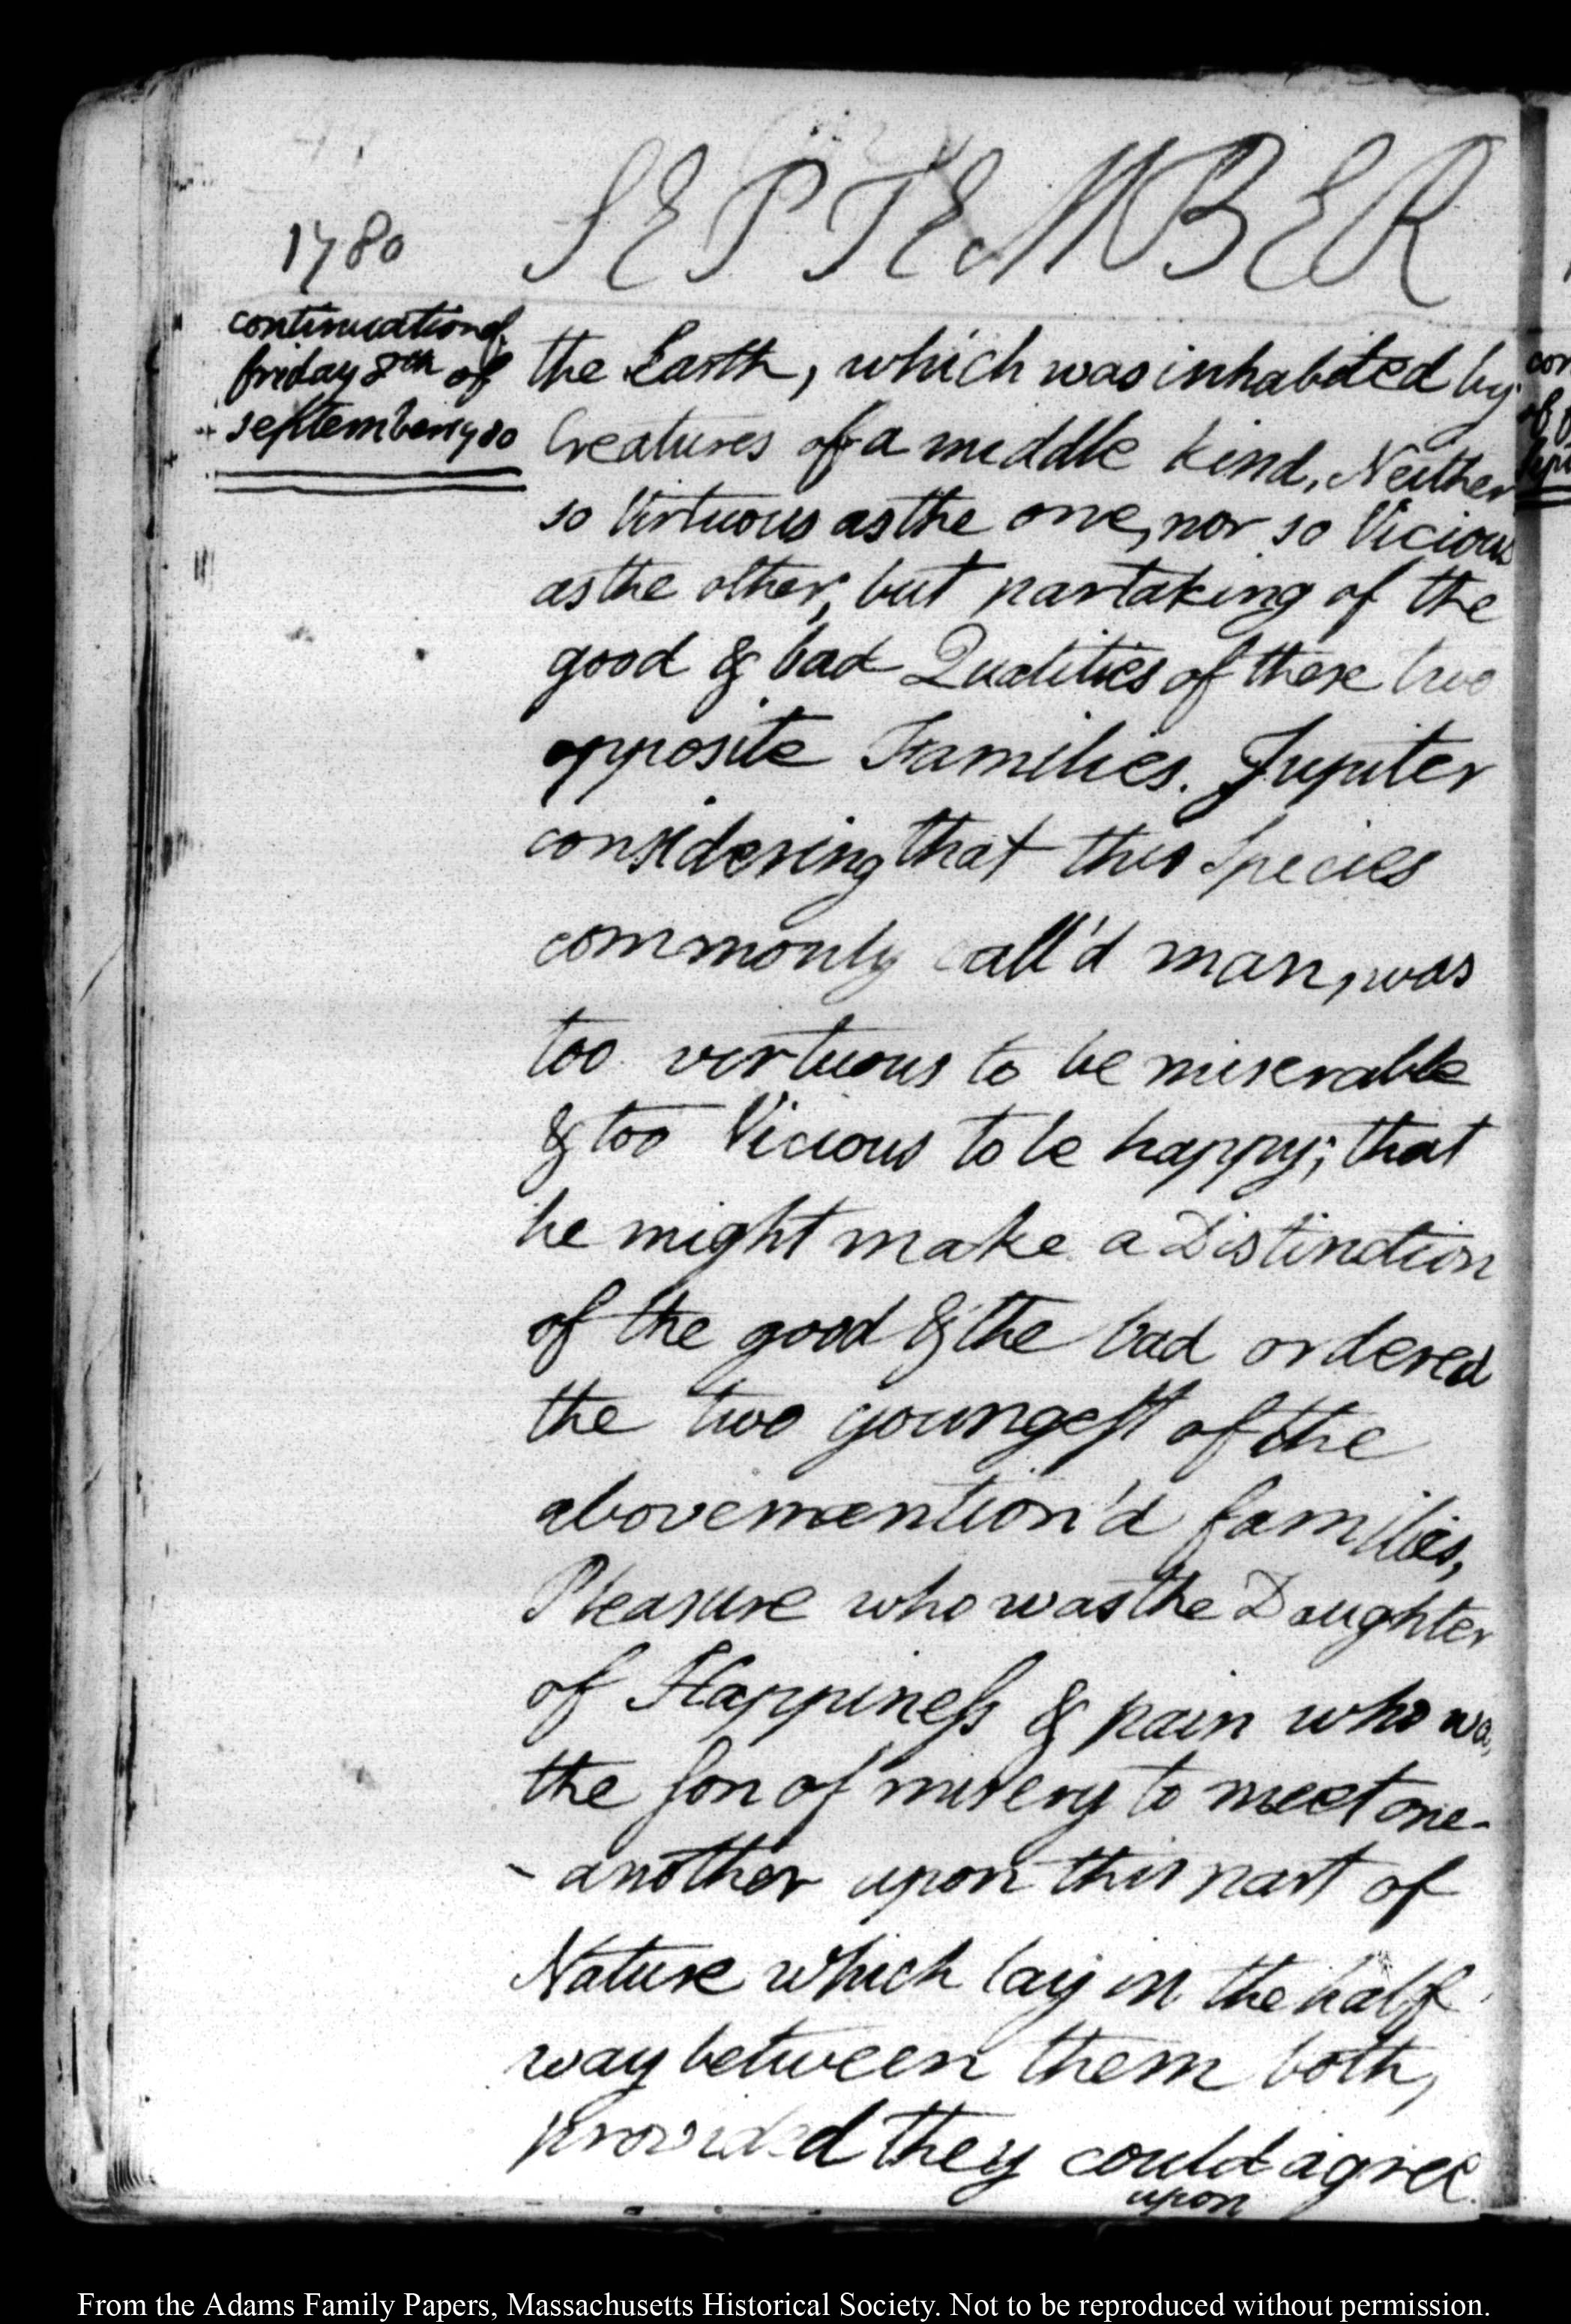 1780
SEPTEMBER
continuation of
friday 8th of
september 1780
the Earth, which was inhabited by
Creatures of a middle kind, Neither
so Virtuous as the one, nor so Vicious
as the other, but partaking of the
good & bad Qualities of these two
opposite Families. Jupiter
considering that this Species
commonly call'd man, was
too virtuous to be miserable
& too Vicious to be happy; that
he might make a Distinction
of the good & the bad ordered
the two youngest of the
abovemention'd families,
Pleasure who was the Daughter
of Happiness & pain who was
the son of misery to meet one-
- another upon this part of
Nature which lay in the half
way between them both,
provided they could agree
upon
From the Adams Family Papers, Massachusetts Historical Society. Not to be reproduced without permission.